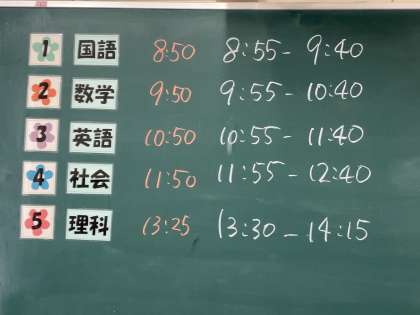 1 国語 8:50 8:55 - 9:40
2 数学 9:50 9:55 - 10:40
3 英語 10:50 10:55 - 11:40
4 社会 11:50 11:55 - 12:40
5 理科 13:25 13:30 - 14:15